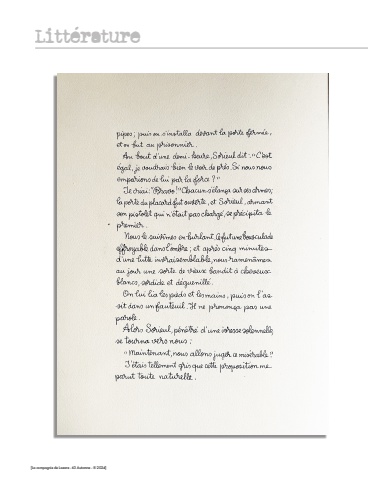 Littérature
pipes; puis on s'installa devant la porte fermée,
et on but au prisonnier.
Au bout d'une demi-heure, Sorieul dit: "C'est
égal, je voudrais bien le voir de près. Si nous nous
emparions de lui par la force?"
Je criai: "Bravo!" Chacun s'élança sur ses armes;
la porte du placard fut ouverte, et Sorieul, armant
son pistolet qui n'était pas chargé, se précipita le
premier.
Nous le suivîmes en hurlant. Ce fut une bousculade
effroyable dans l'ombre; et après cinq minutes
d'une lutte invraisemblable, nous ramenâmes
au jour une sorte de vieux bandit à cheveux
blancs, sordide et déguenillé.
On lui lia les pieds et les mains, puis on l'as-
sit dans un fauteuil. Il ne prononça pas une
parole.
Alors Sorieul, pénétré d'une ivresse solennelle,
se tourna vers nous:
"Maintenant, nous allons juger ce misérable."
J'étais tellement gris que cette proposition me
parut toute naturelle.